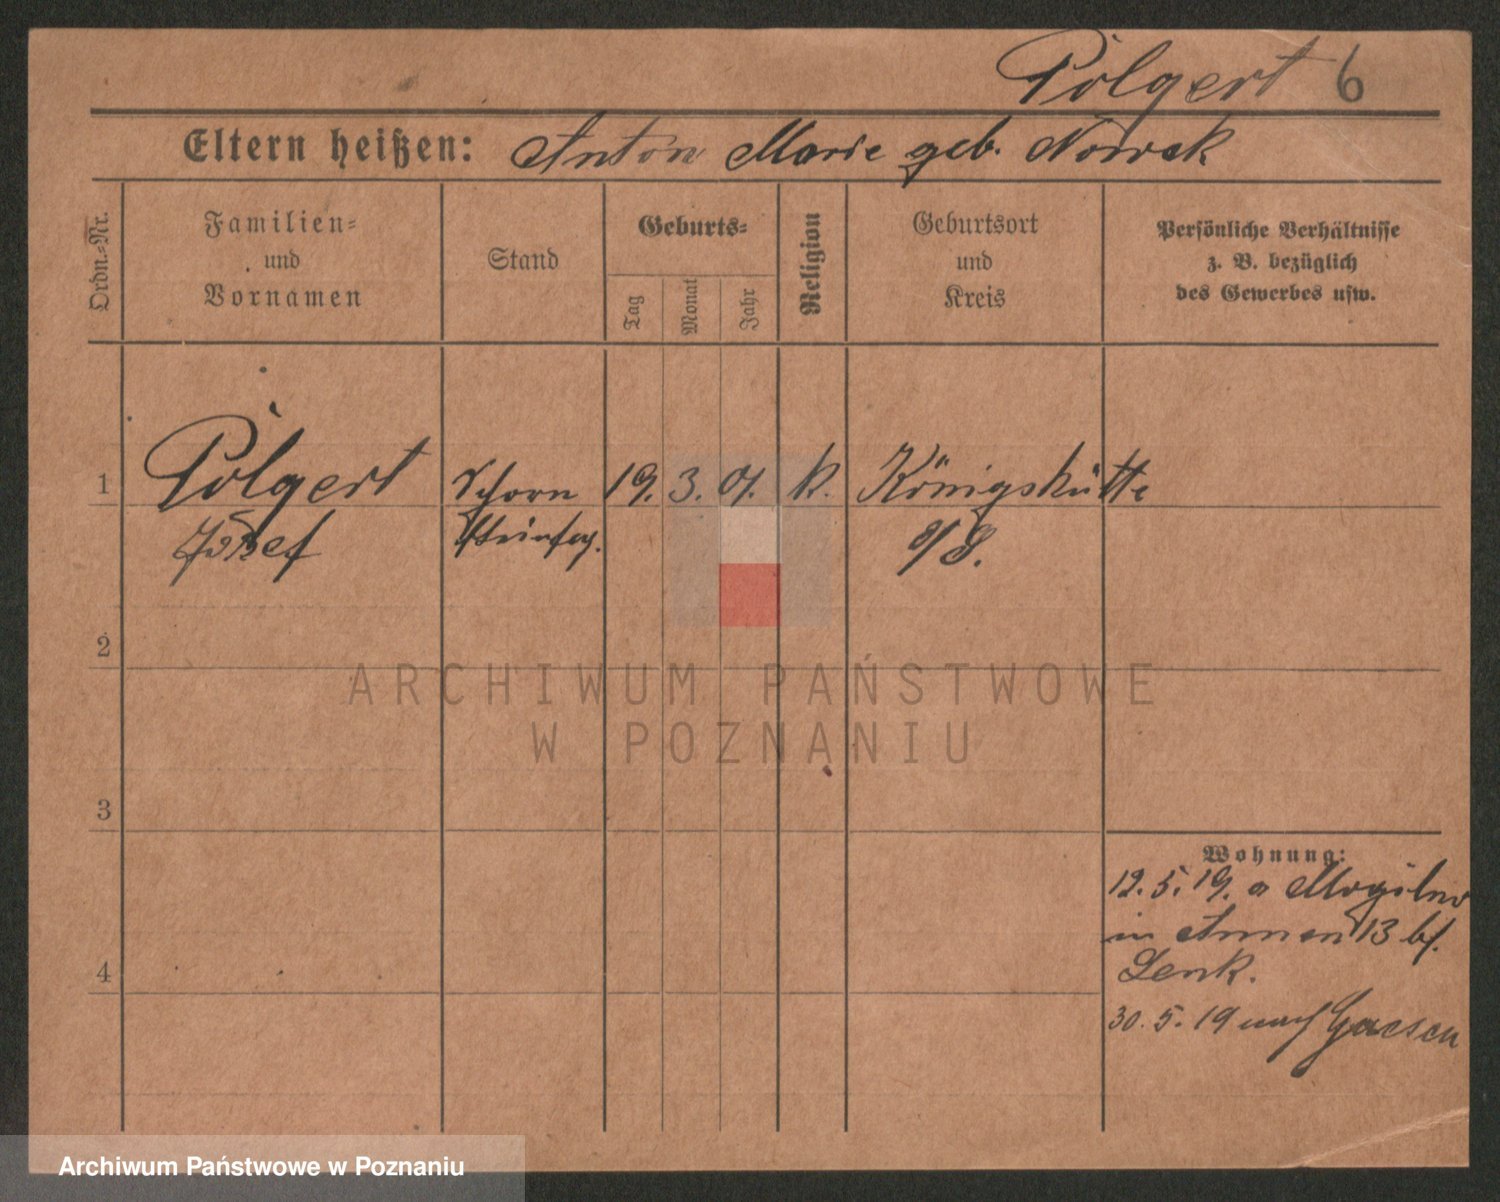 Polgert 6
Eltern heißen: Anton Marie geb. Nowak
Ordn.=Nr.
Familien=
und
Vornamen
Stand
Geburts=
Tag
Monat
Jahr
Religion
Geburtsort
und
Kreis
Persönliche Verhältnisse
z. B. bezüglich
des Gewerbes usw.
1 Polgert Schorn 19. 3. 01. k. Königshütte
Josef steinfeg. o/S.
2
ARCHIWUM PAŃSTWOWE
W POZNANIU
3
Wohnung:
12. 5. 19. a Mogilno
in 13 bf.
4 Lenk.
30. 5. 19 nach Gnesen
Archiwum Państwowe w Poznaniu